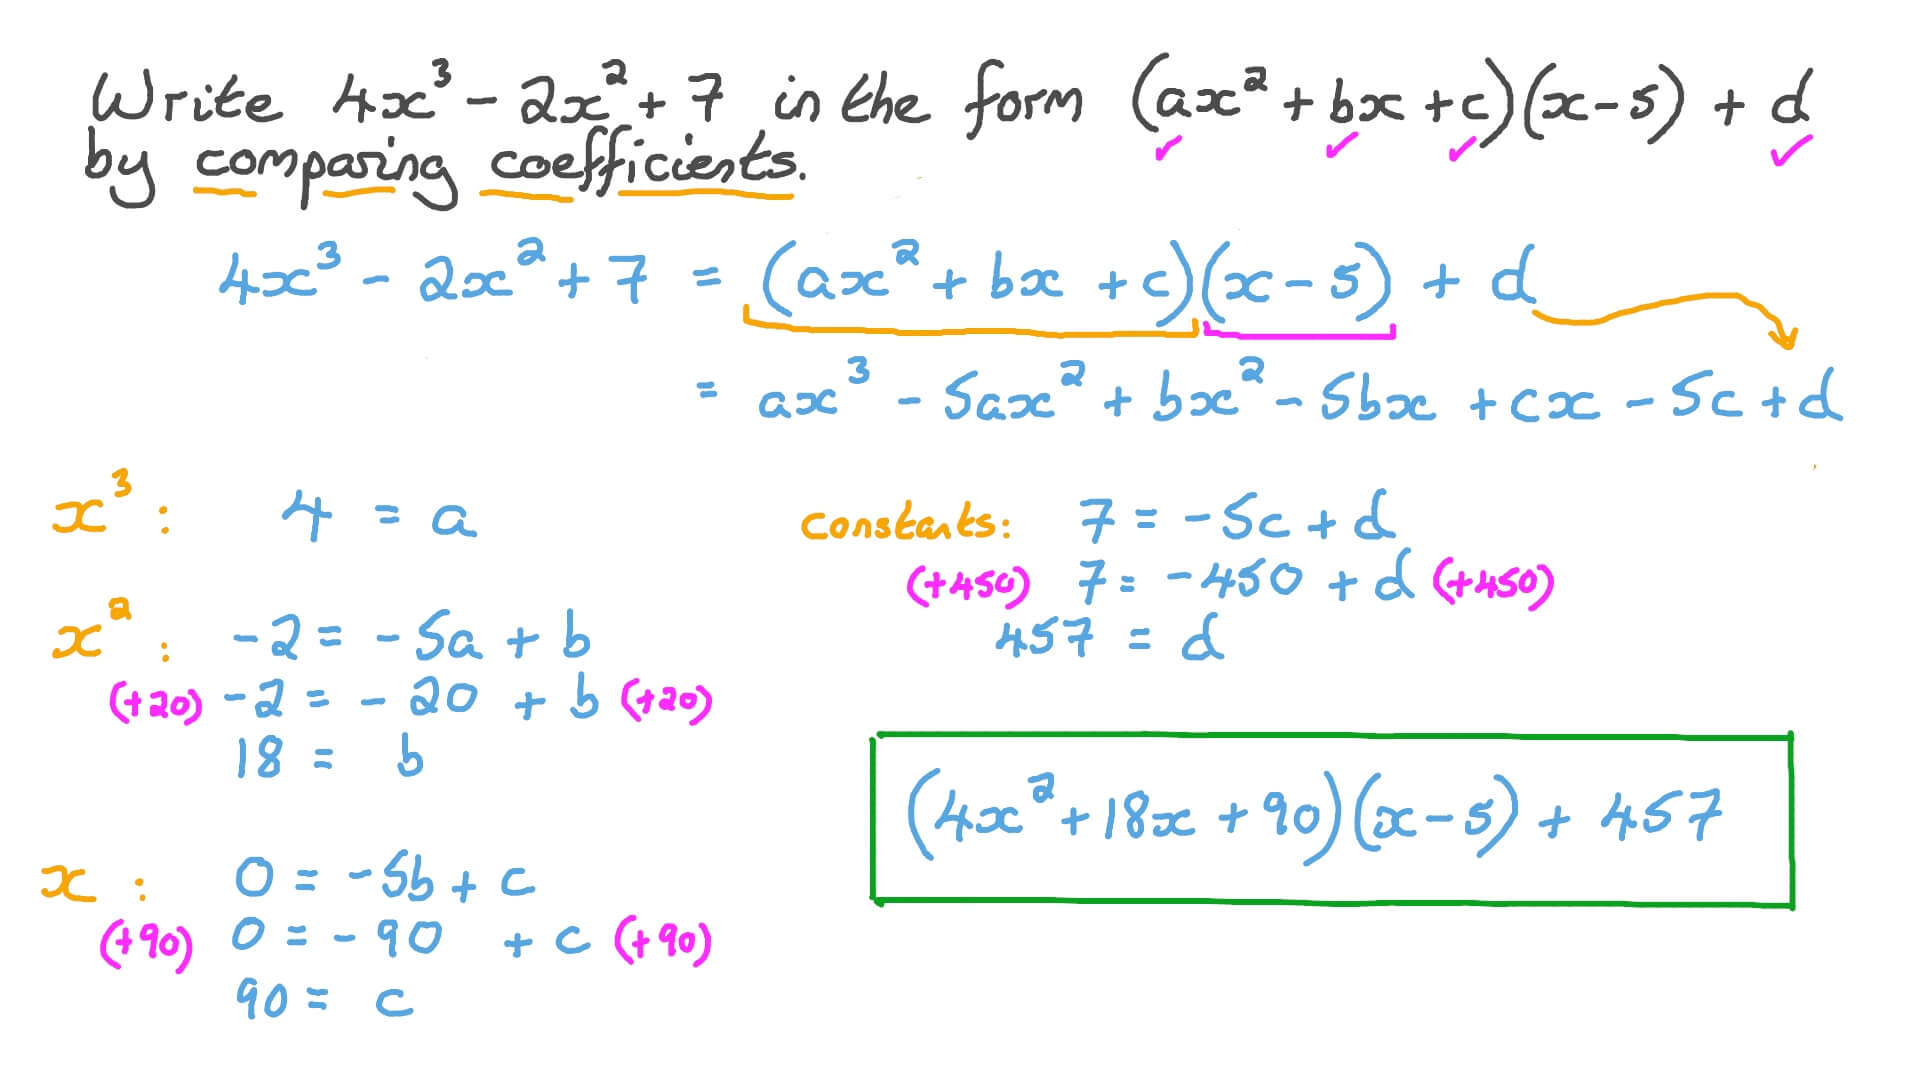 Write 4x³ - 2x² + 7 in the form (ax² + bx + c)(x - 5) + d
by comparing coefficients.
4x³ - 2x² + 7 = (ax² + bx + c)(x - 5) + d
= ax³ - 5ax² + bx² - 5bx + cx - 5c + d
x³ : 4 = a
x² : -2 = -5a + b
(+20) -2 = -20 + b (+20)
18 = b
x : 0 = -5b + c
(+90) 0 = -90 + c (+90)
90 = c
constants: 7 = -5c + d
(+450) 7 = -450 + d (+450)
457 = d
(4x² + 18x + 90)(x - 5) + 457